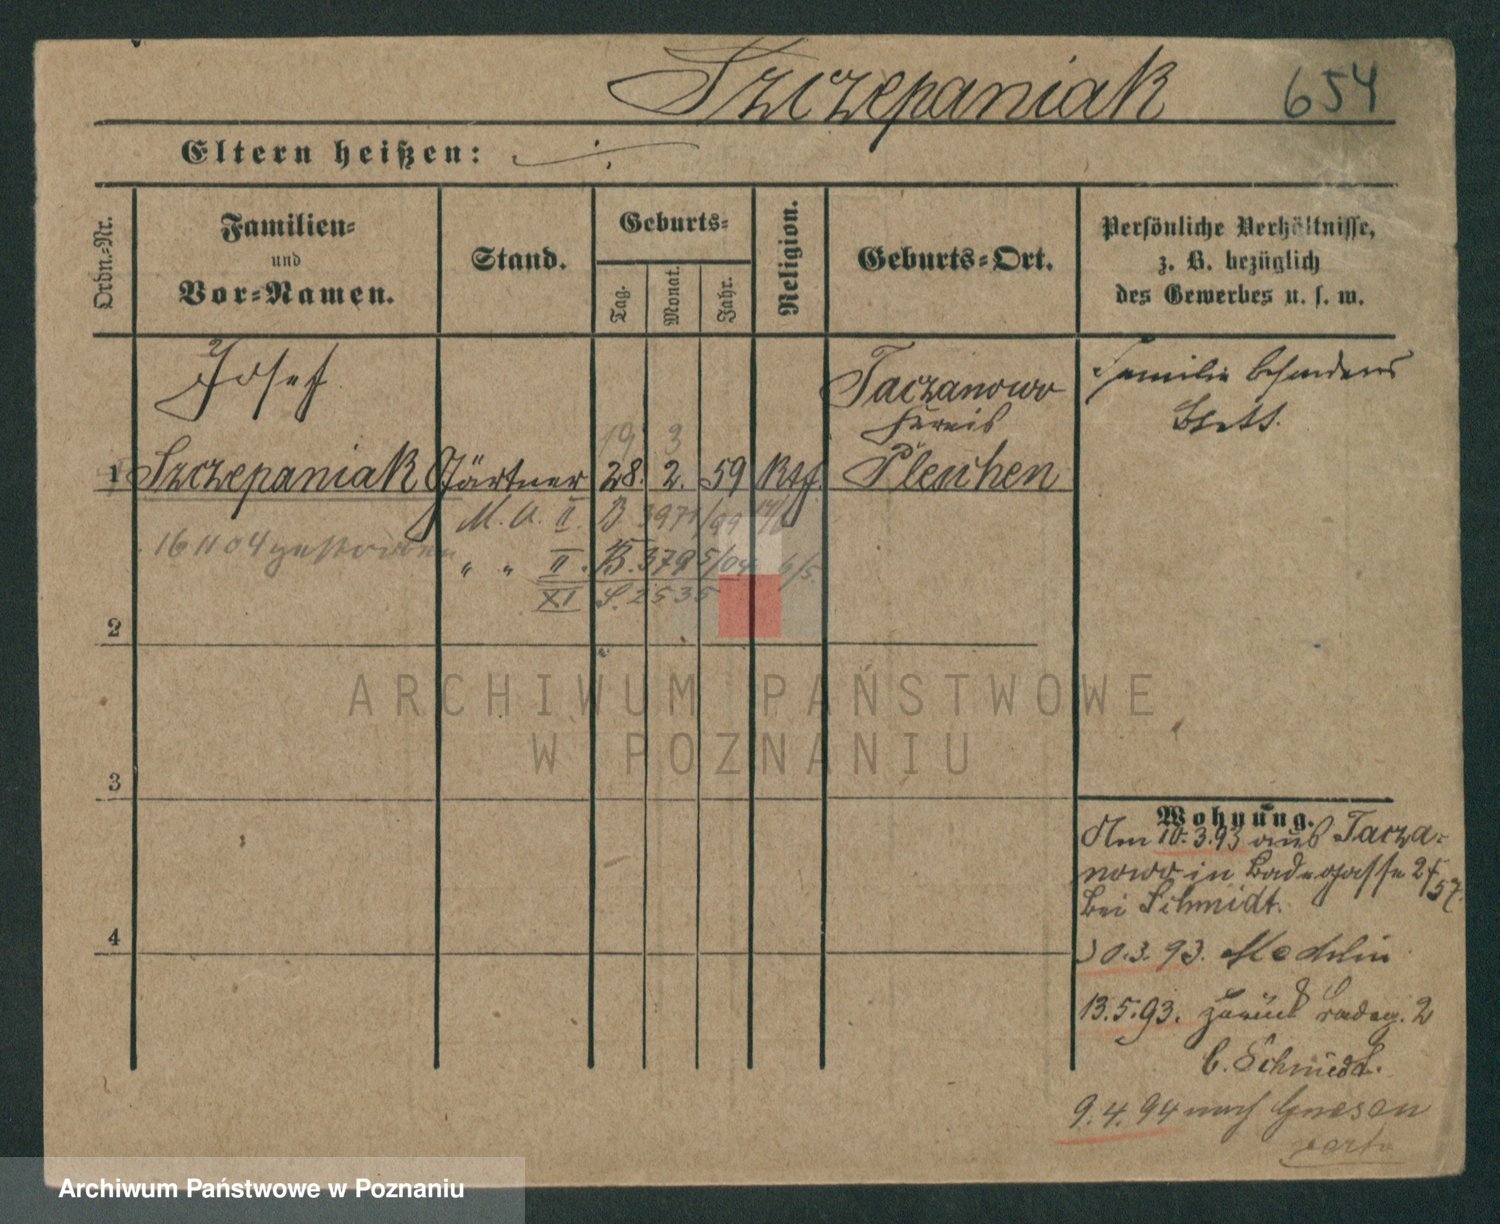 Szczepaniak 654
Eltern heißen: ./.
Ordn.-Nr.
Familien-
und
Vor-Namen.
Stand.
Geburts-
Tag.
Monat.
Jahr.
Religion.
Geburts-Ort.
Persönliche Verhältnisse,
z. B. bezüglich
des Gewerbes u. s. w.
Josef
Taczanowo
Kreis
Familie besonderes
Blatt.
19 3
1 Szczepaniak Gärtner 28. 2. 59 Kth Pleschen
M. A. II. B 3971/99
16 11 04 gestorben
" " II. B. 3795/04 6/5.
XI S. 2535
2
3
4
Wohnung.
Am 10.3.93 aus Tacza-
nowo in Badegasse 2
bei Schmidt.
30.3.93.
13.5.93. zurück Badeg. 2
b. Schmidt.
9.4.94 nach Gnesen
ARCHIWUM PAŃSTWOWE
W POZNANIU
Archiwum Państwowe w Poznaniu